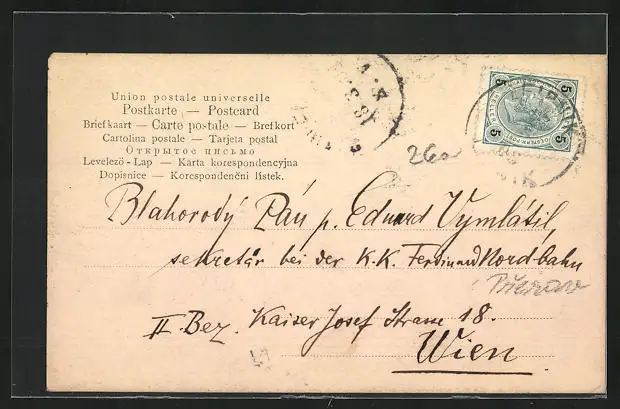 Union postale universelle
Postkarte — Postcard
Briefkaart — Carte postale — Brefkort
Cartolina postale — Tarjeta postal
Открытое письмо
Levelező - Lap — Karta korespondencyjna
Dopisnice — Korespondenční lístek.
26a
5 5
5 5
Blahorodý Pán p. Eduard Vymlátil,
sekretár bei der K.K. Ferdinand Nordbahn
Přerov
II. Bez. Kaiser Josef Strasse 18.
Wien